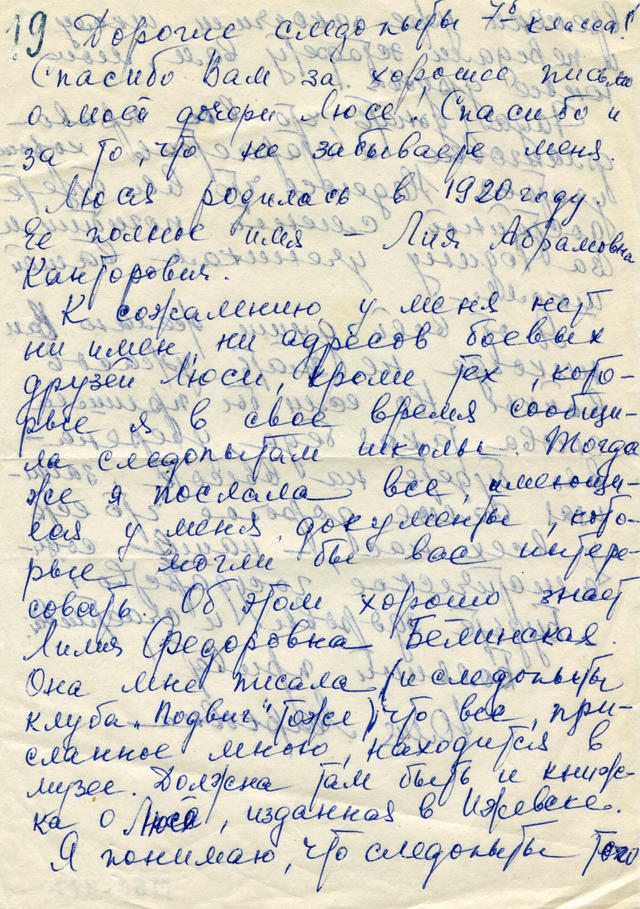 19 Дорогие следопыты 7-в класса!
Спасибо Вам за хорошее письмо
о моей дочери Люсе! Спасибо и
за то, что не забываете меня.
Люся родилась в 1920 году
Ее полное имя – Лия Абрамовна
Канторович.
К сожалению, у меня нет
ни имен, ни адресов боевых
друзей Люси, кроме тех, кото-
рые я в свое время сообщи-
ла следопытам школы. Тогда
же я послала все, имеющи-
еся у меня, документы, кото-
рые могли бы вас интере-
совать. Об этом хорошо знает
Лилия Федоровна Белинская.
Она мне писала (и следопыты
клуба „Подвиг" тоже), что все, при-
сланное мною, находится в
музее. Должна там быть и книж-
ка о Люсе, изданная в Ижевске.
Я понимаю, что следопыты того